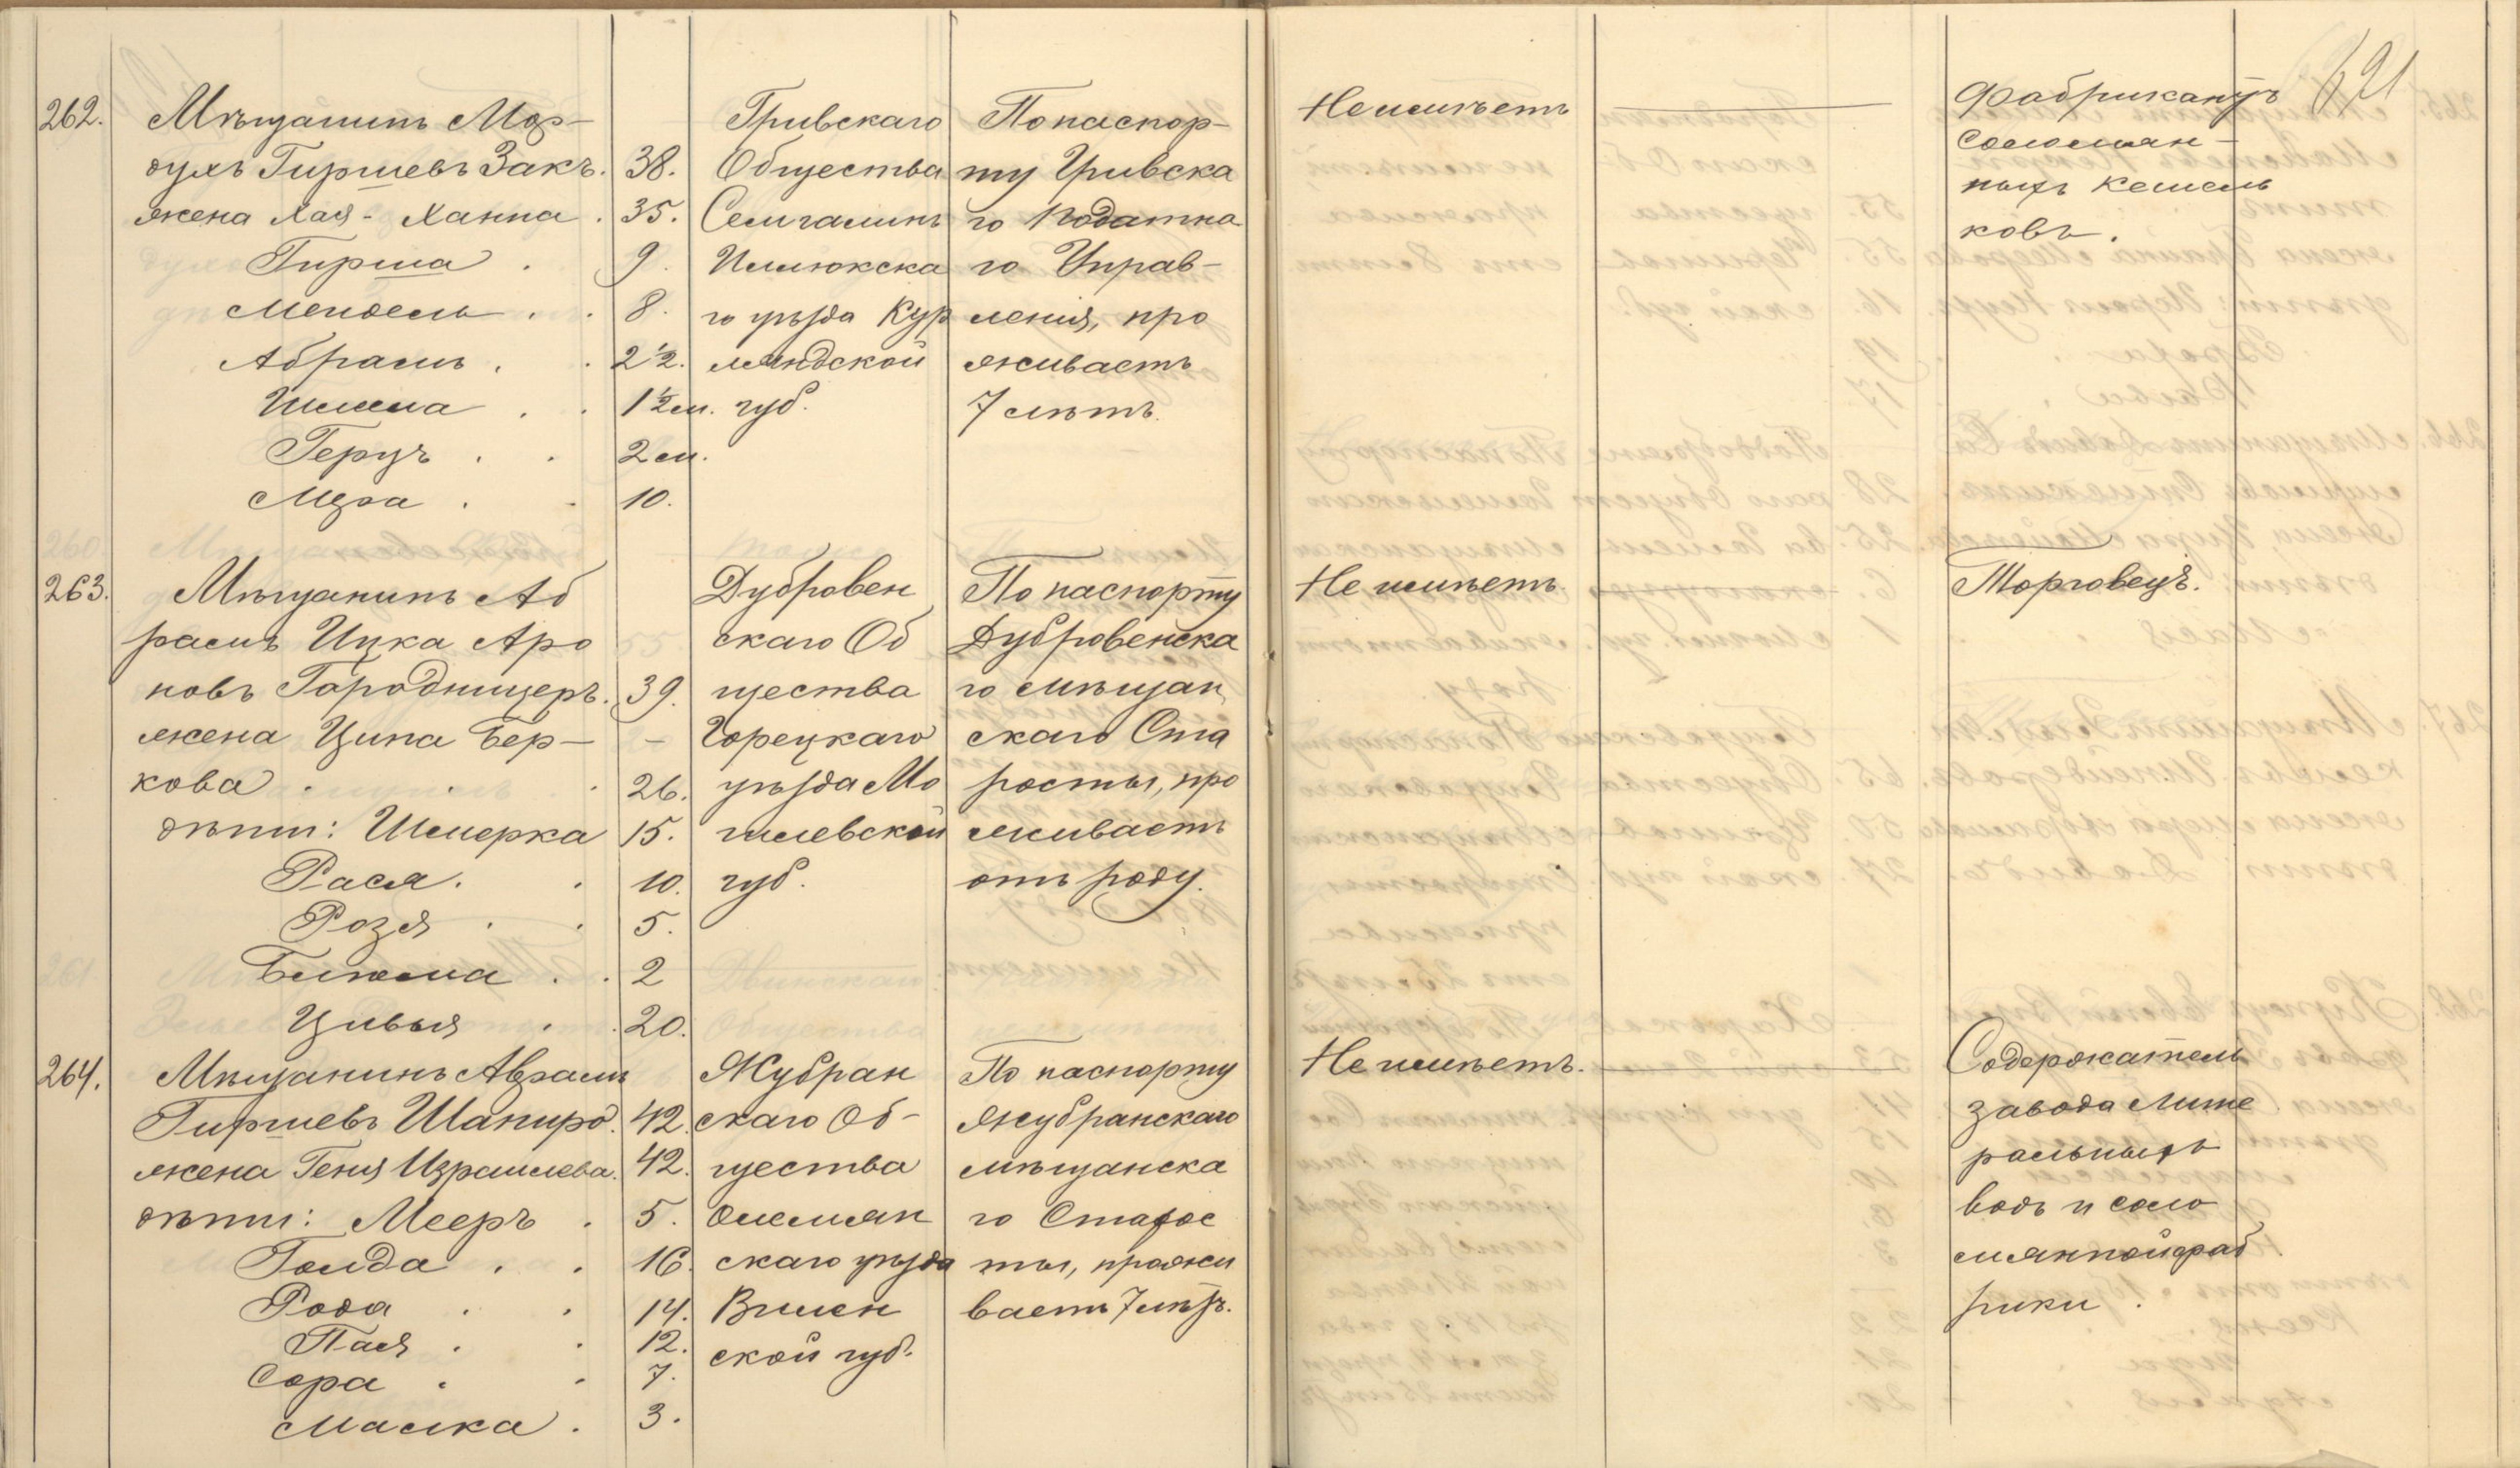 621
262. Мѣщанинъ Мор-
духъ Гиршевъ Закъ. 38.
жена Хая-Ханна . 35.
Гирша . 9.
Мендель . . 8.
Абрамъ . . 2½.
Шлема . . 1½ м.
Герцъ . . 2 м.
Мера . . 10.
Гривскаго
Общества
Семигалинъ
Иллюкска
го уѣзда Кур
ляндской
губ.
По паспор-
ту Гривска
го податна
го Управ-
ленія, про
живаетъ
7 лѣтъ.
Не имѣетъ
Фабрикантъ
соломян-
ныхъ кошель
ковъ.
263. Мѣщанинъ Аб
рамъ Ицка Аро
новъ Городищеръ. 39.
жена Ципа Бер- -
кова . . . 26.
дѣти: Шмерка 15.
Рася . . 10.
Розя . . 5.
Блюма . . 2
Цивья . . 20.
Дубровен
скаго Об
щества
Горецкаго
уѣзда Мо
гилевской
губ.
По паспорту
Дубровенска
го мѣщан
скаго Ста
росты, про
живаетъ
отъ роду.
Не имѣетъ.
Торговецъ.
264. Мѣщанинъ Абрамъ
Гиршевъ Шапиро. 42.
жена Геня Израилева. 42.
дѣти: Мееръ . 5.
Голда . . 16.
Рода . . 14.
Пая . . 12.
Сора . . 7.
Малка . 3.
Жубран
скаго Об-
щества
Ошмян
скаго уѣзда
Вилен
ской губ.
По паспорту
Жубранскаго
мѣщанска
го Старос
ты, прожи
ваетъ 7 лѣтъ.
Не имѣетъ.
Содержатель
завода мине
ральныхъ
водъ и соло
мянной фаб
рики .